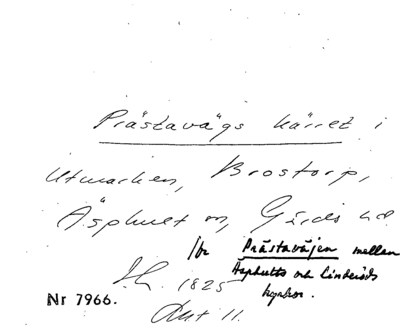 Prästavägs kärret i
Utmarken, Brostorp,
Äsphult sn, Gärds hd
för Prästavägen mellan
Äsphults och Linderöds
kyrkor.
Sk. 1825
Nr 7966.
Akt 11.